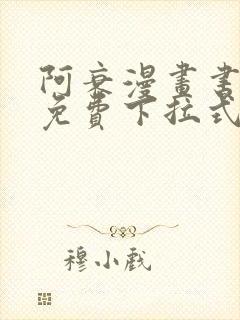 阿衰漫畫書
免費下拉式
穆小戲